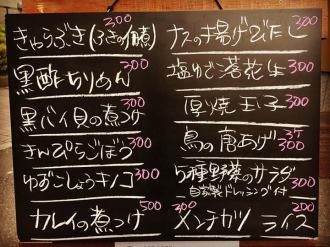 きゃらぶき(ふきの佃煮) 300
黒酢ちりめん 300
黒バイ貝の煮つけ 300
きんぴらごぼう 300
ゆずこしょうキノコ 300
カレイの煮つけ 500
ナスの揚げびたし 300
塩ゆで落花生 300
厚焼玉子 300
鳥の唐あげ 300
5種野菜のサラダ 300
自家製ドレッシング付
メンチカツ 300
ライス 200